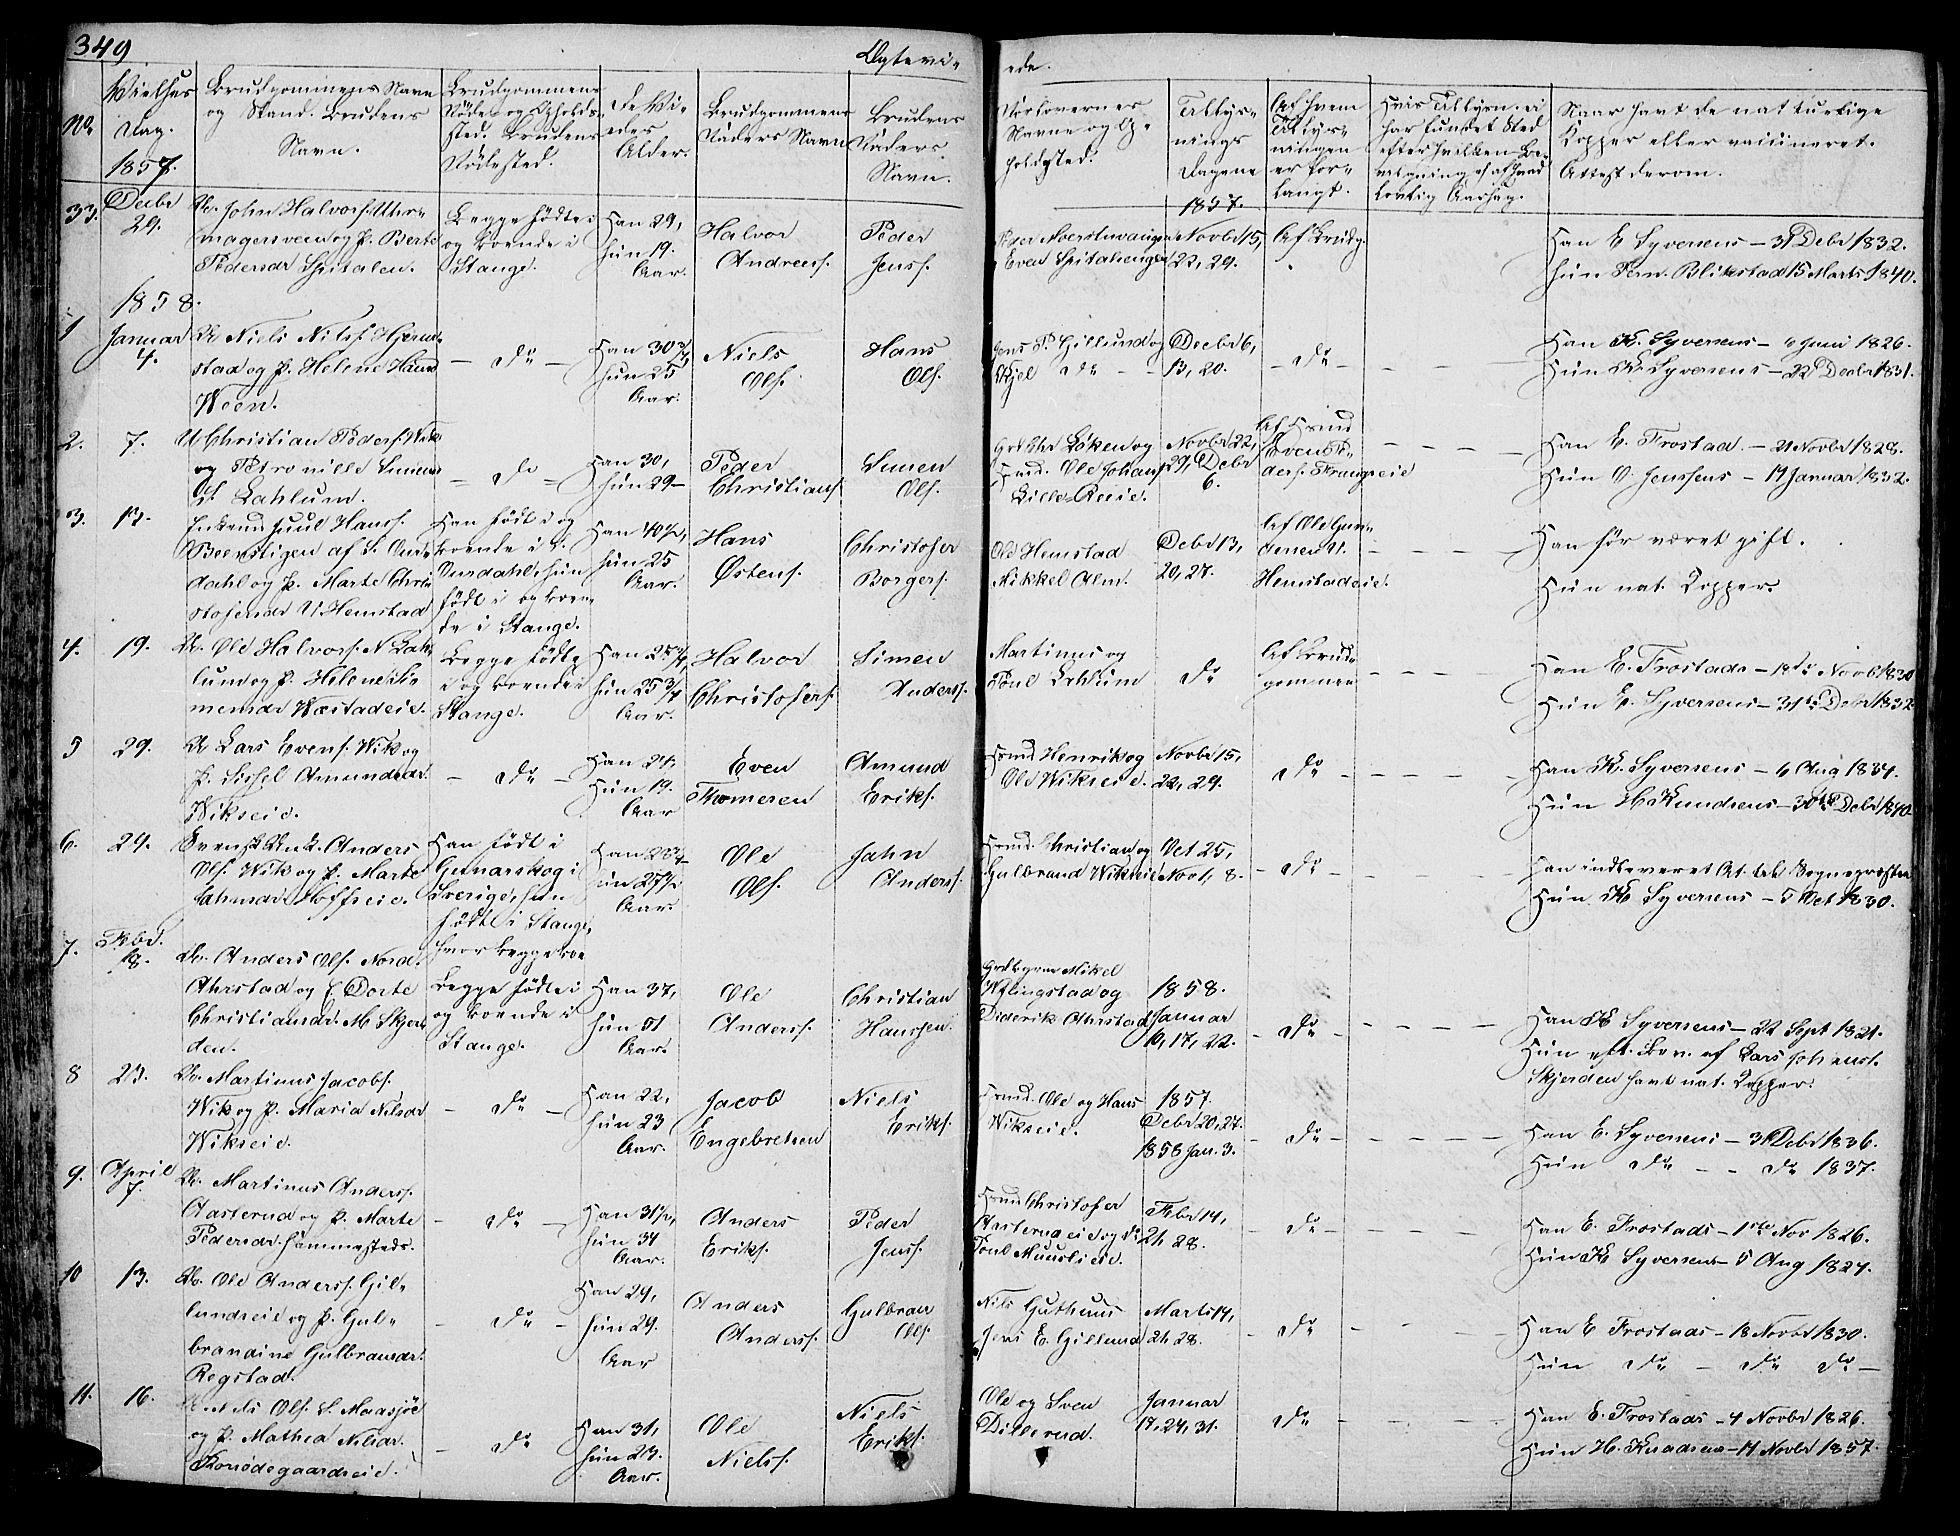 349
Ægtevi-
ede.
No
Vielses
Dag.
1857.
Brudgommens Navn
og Stand. Brudens
Navn.
Brudgommens
Føde- og Opholds-
sted. Brudens
Fødested.
De Vi-
edes
Alder.
Brudgommens
Faders Navn
Brudens
Faders
Navn.
Forlovernes
Navne og Op-
holdssted.
Tillys-
nings
Dagene
1857.
Af hvem
Tillys-
ningen
er for-
langt.
Hvis Tillysn. ei
har fundet Sted
efter hvilken Be-
vilgning el. af hvad
Lovlig Aarsag.
Naar havt de naturlige
Kopper eller vaccineret.
Attest derom.
33. Decbr 29.
John Halvors. Uthu-
magersveen og P. Berte
Pedersdr Spitalen.
Begge fødte i
og boende i
Stange.
Han 29,
Hun 19.
Aar.
Halvor
Andreas.
Peder
Jens.
Even Spitalengen
Novbr 15,
22, 29.
Af Brudg.
Han E Syversens - 31 Debr 1832.
Hun Blikstad 15 Marts 1840.
1858.
1 Januar 4.
Niels Nilss. Hjerm-
stad og P. Helene Hansd
Ween.
- do -
Han 30 3/4,
Hun 25
Aar.
Niels
Ols.
Hans
Ols.
Jens P. Gillund og
Kjel do
Decbr 6,
13, 20.
- do -
Han K. Syversens - 6 Juni 1826.
Hun K. Syversens - 22 Decbr 1831.
2. 7.
Christian Peders. Wik
og Petronille Simens
dr Lahlum.
- do -
Han 30,
Hun 29 -
Peder
Christians.
Simen
Ols.
Løken og
Ole Johans.
Lille-Reeie.
Novbr 22,
29, Debr
6.
Af
Even Pe-
ders. Frangseie
Han E. Frostad. - 21 Novbr 1828.
Hun O. Jenssens - 17 Januar 1832.
3. 13.
Enkemd Juul Hanss.
Beenstigen af S. Our-
dahl og P. Marte Chri-
stofersdr U. Hemstad
Han født i og
boende i S.
Ourdahl, hun
født i og boen-
de i Stange.
Han 40 1/2,
Hun 25
Aar.
Hans
Østens.
Christofer
Borgers.
Ole Hemstad
Mikkel Alm.
Debr 13,
20, 27.
Af Ole Gun-
Hemstadeie.
Han før været gift.
Hun nat. Kopper.
4. 19.
Ole Halvors. N. Lah-
lum og P. Helene Si-
mensdr Wæstadeie.
Begge fødte
i og boende i
Stange.
Hun 25 3/4
Aar.
Halvor
Christofers.
Simen
Anders.
Martinus og
Poul Lahlum
do
Af Brud-
gommen
Han E. Frostads - 18de Novb 1830
Hun E. Syversens - 31te Debr 1832
5 29.
Lars Evens. Wik og
P. Sissel Amundsdr.
Wikseie.
- do -
Han 24,
Hun 19.
Aar
Even
Thomesen
Amund
Eriks.
Henrik og
Ole Wikseie.
Novbr 15,
22, 29.
do
Han K. Syversens - 6 Aug 1834.
Hun H. Knudsens - 30te Debr 1840.
6. 29.
Svensk Unk. Anders
Ols. Wik og P. Marte
Jahnsdr Hoffseie.
Han født i
Gunarskog i
Sverige, hun
født i Stange,
hvor begge boe
Hun 27 1/2
Aar.
Ole
Ols.
Jahn
Anders.
Christian og
Gulbrand Wikseie
Oct 25,
Nov 1, 8.
- do -
Han indleveret At. til Sognepræsten
Hun K Syversens - 5 Oct 1830.
7. Febr. 18.
Anders Ols. Nord-
Ahrstad og E. Dorte
Christiansdr. M. Skjer-
den.
Begge fødte i
og boende i
Stange.
Han 37,
Hun 51
Aar.
Ole
Anderss.
Christian
Hanssen.
Mikel
Wælingstad og
Diderik Ahrstad
1858.
Januar
10, 17, 22.
- do -
Han K Syversens - 22 Sept 1821.
Hun eft. Bev. af Lars Johanns.
Skjerden havt nat. Kopper.
8 23.
Martinus Jacobs.
Wik og P. Maria Nilsdr
Wikseie.
- do -
Han 22,
Hun 23
Aar.
Jacob
Engebretsen
Niels
Eriks.
Ole og Hans
Wikseie.
1857
Debr 20, 27.
1858 Jan. 3.
- do -
Han E. Syversens - 31 Debr 1836.
Hun do - - do 1837.
9. April 7.
Martinus Anders.
Aasterud og P. Marte
Pedersdr. Hammersteds.
- do -
Han 31 1/2,
Hun 34
Aar.
Anders
Eriks.
Peder
Jens.
Christofer
Aasterudeie og
Poul Muuslieie.
Febr 14,
21, 28.
- do -
Han E. Frostads - 1ste Nov 1826.
Hun K Syversens - 5 Aug 1824.
10 13.
Ole Anders. Gil-
lundseie og P. Gul-
brandine Gulbransdr.
Røgstad.
- do -
Han 29,
Hun 29.
Aar
Anders
Anders.
Gulbran
Ols.
Nils Guthuus
Jens E. Gillund
Marts 14,
21, 28.
- do -
Han E Frostads - 18 Novbr 1830.
Hun do - do do -
11. 16.
Nils Ols. S. Maasjøe
og P. Mathea Nilsdr.
- do -
Han 31,
Hun 23.
Aar.
Ole
Nielss.
Niels
Eriks.
Ole og Sven
Dillerud.
Januar
17, 24, 31.
do
Han E. Frostads - 4 Novbr 1826.
Hun H. Knudsens - 17 Novbr 1857.